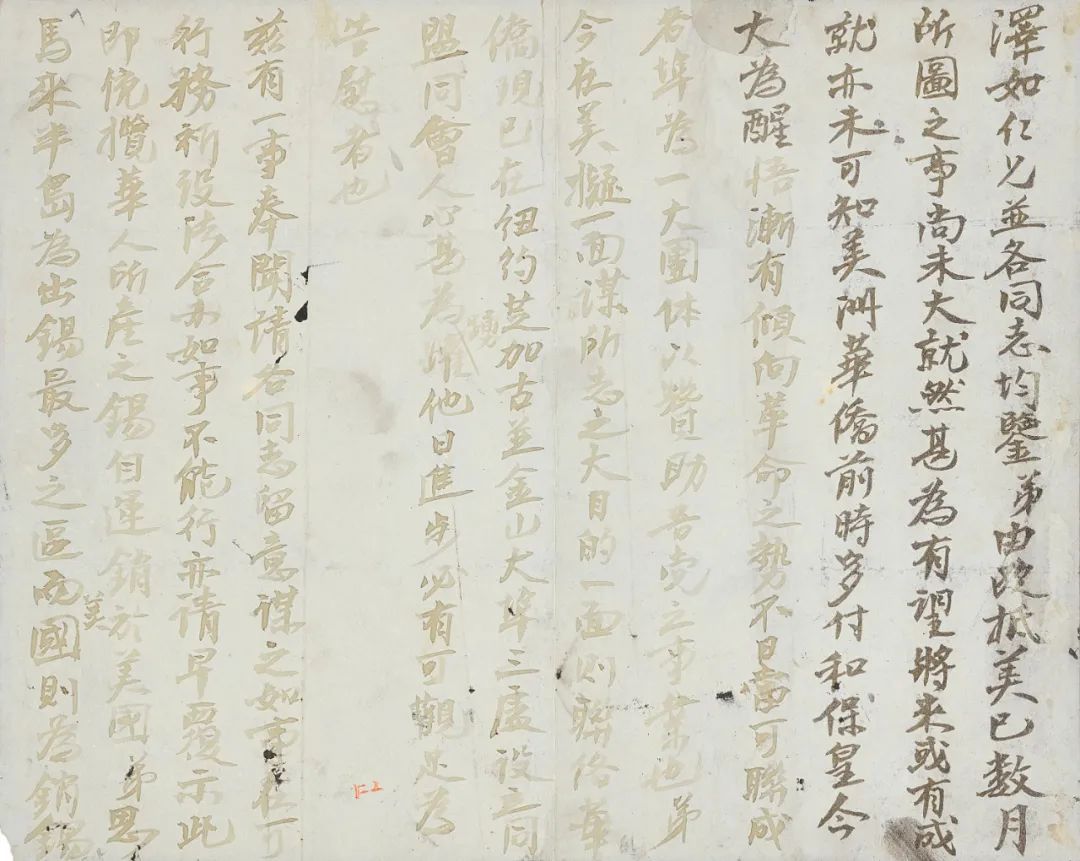 澤如仁兄並各同志均鑒弟由歐抵美已数月
所圖之事尚未大就然甚為有望將来或有成
就亦未可知美洲華僑前時多付和保皇今
大為醒悟漸有傾向革命之勢不日當可聯成
各埠為一大團体以贊助吾党之事業也弟
今在美擬一面謀所志之大目的一面則聯络華
僑現已在纽约芝加古並金山大埠三處設立同
盟同會人心甚為踴
躍他日進步必有可觀足為
告慰者也
兹有一事奉聞請各同志留意谋之如事在可
行務祈設法合办如事不能行亦请早覆示此
即侻攬華人所產之锡自運銷於美國弟思
馬来半島為出錫最多之區而美國則為銷錫
E2